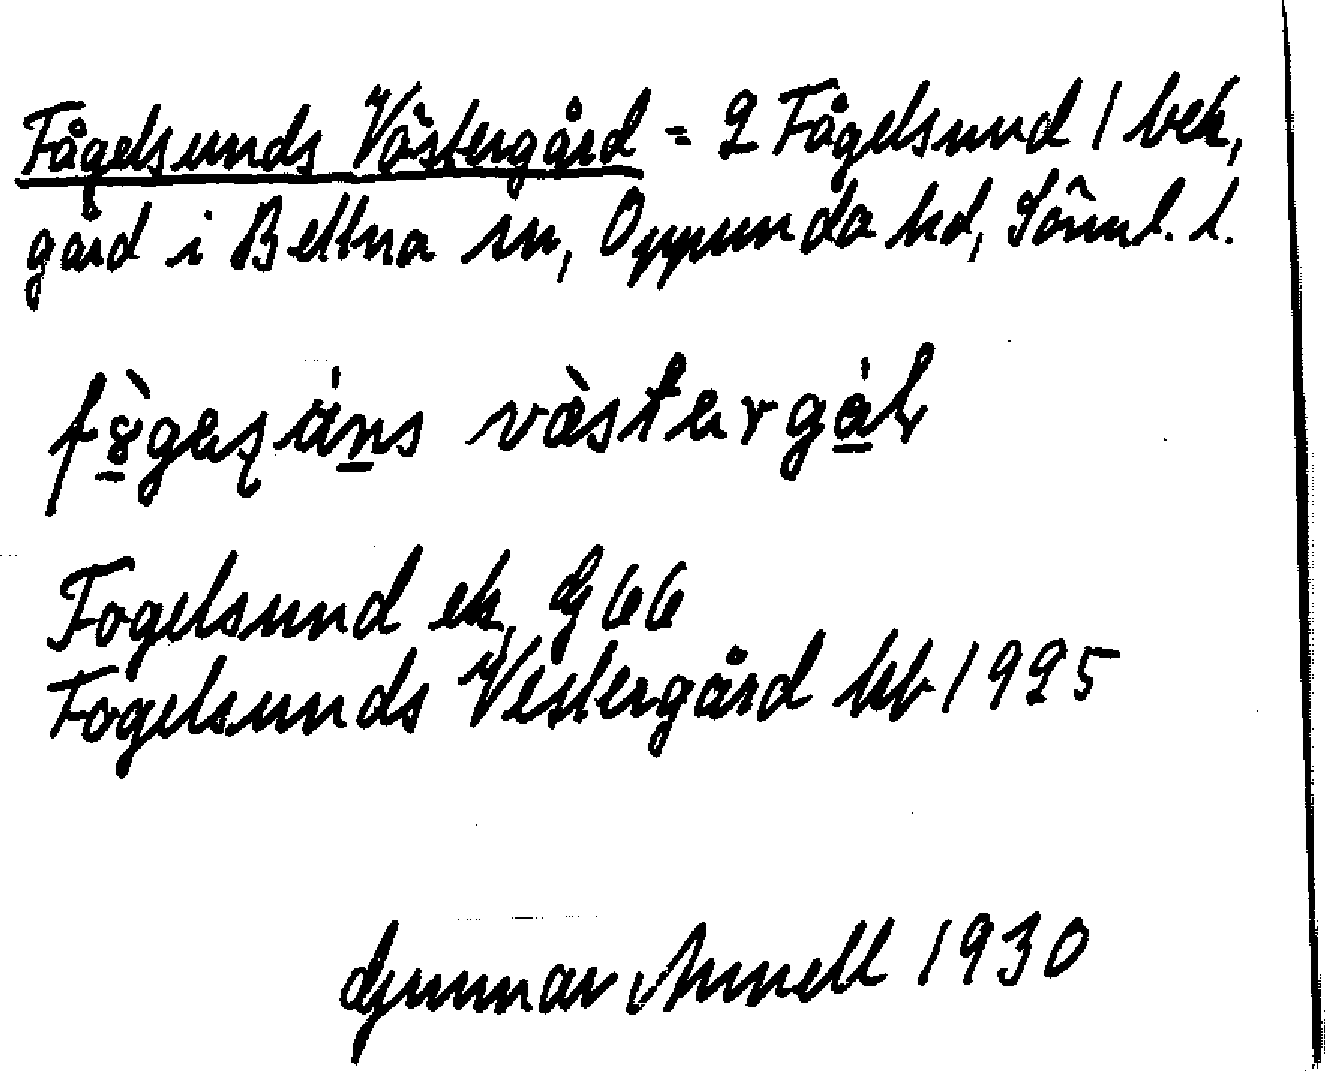 Fågelsunds Västergård = 2 Fågelsund / bek,
gård i Bettna sn, Oppunda hd, Sörml. l.
västergå̱ɽ
Fogelsund ek, G 66
Fogelsunds Vestergård kb 1925
Gunnar Annell 1930